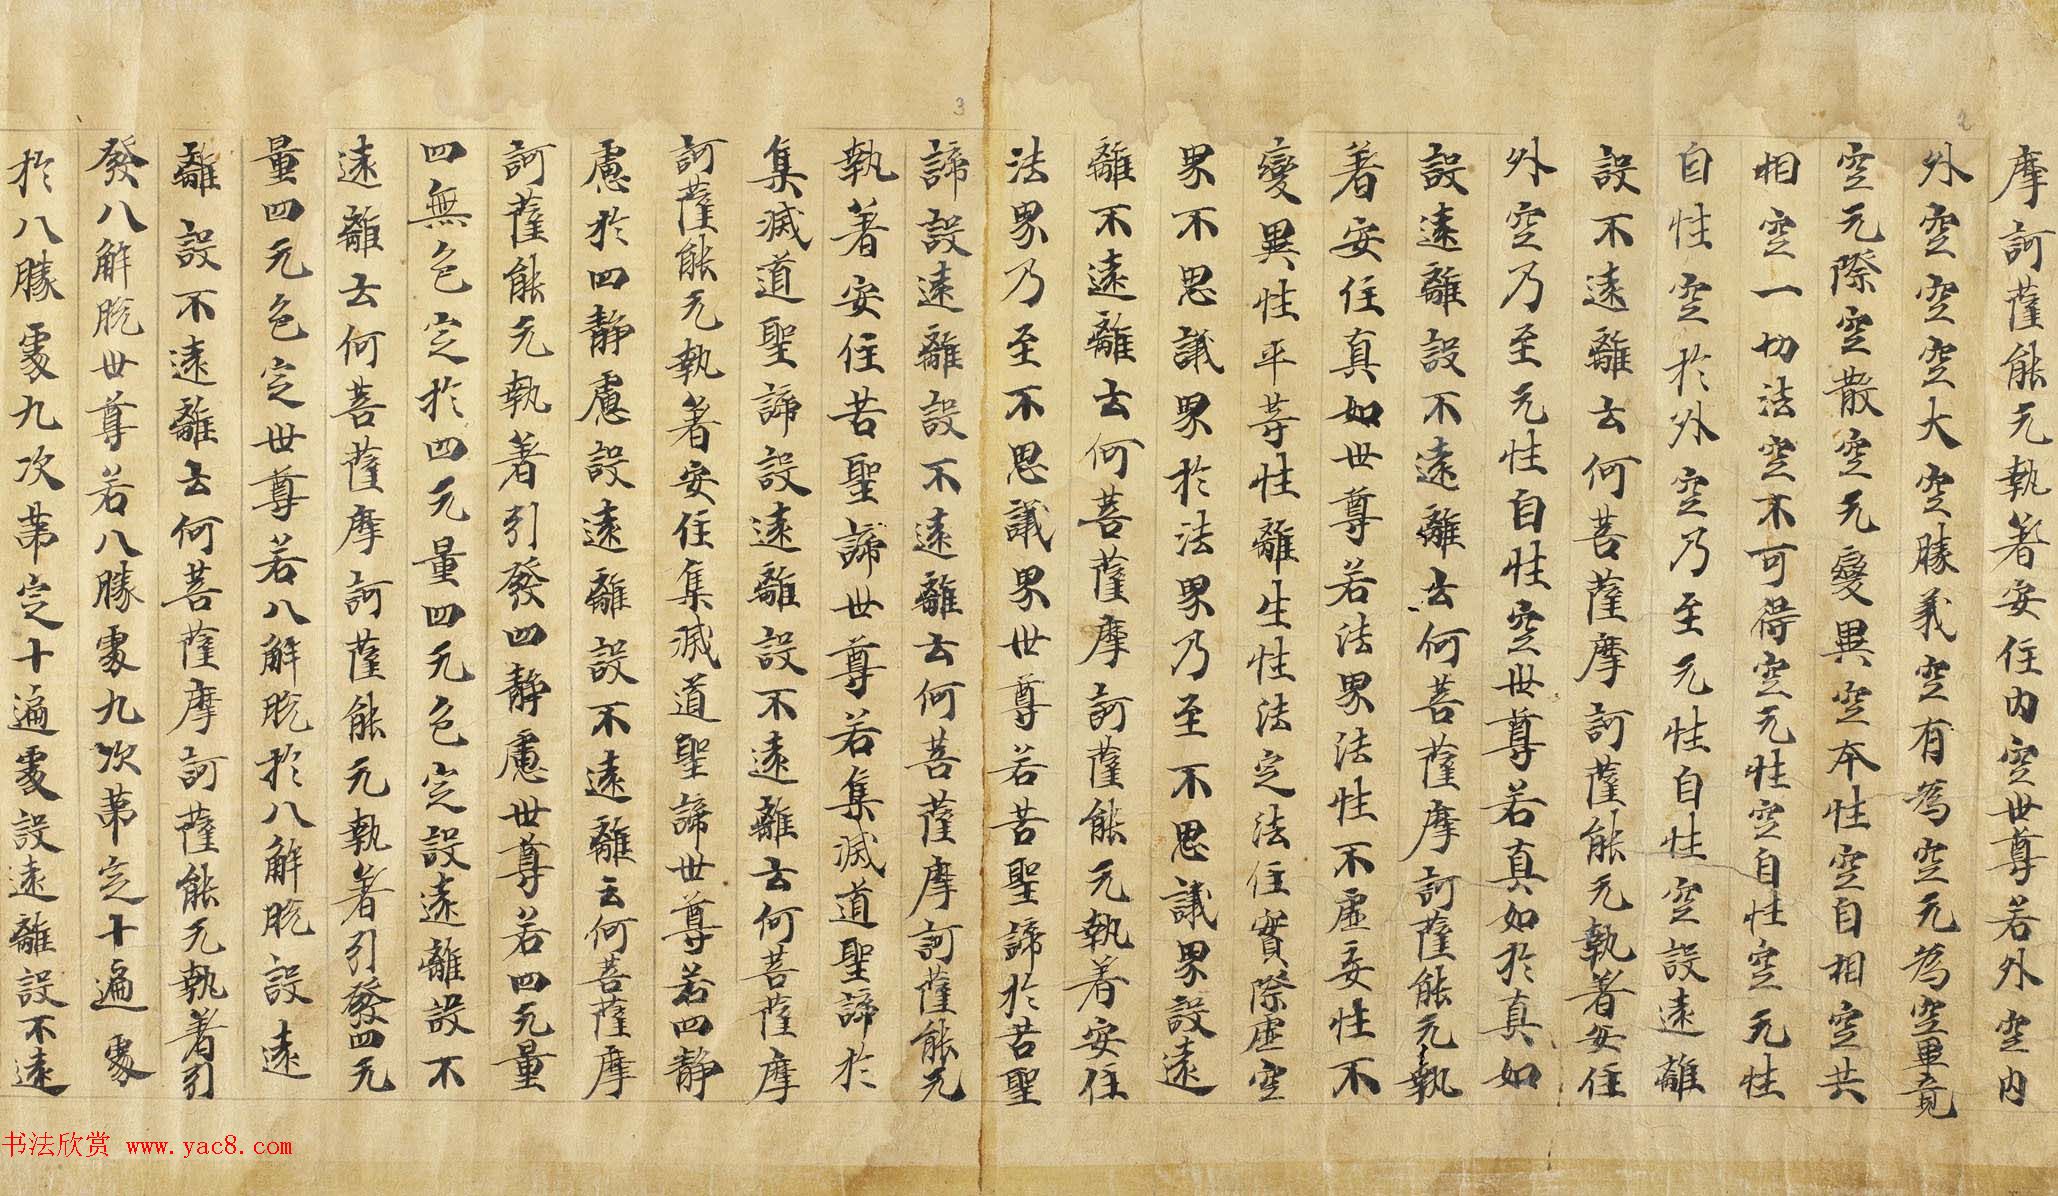 2
摩訶薩能无執著安住內空世尊若外空內
外空空空大空勝義空有為空无為空畢竟
空无際空散空无變異空本性空自相空共
相空一切法空不可得空无性空自性空无性
自性空於外空乃至无性自性空設遠離
設不遠離云何菩薩摩訶薩能无執著安住
外空乃至无性自性空世尊若真如於真如
設遠離設不遠離云何菩薩摩訶薩能无執
著安住真如世尊若法界法性不虛妄性不
變異性平等性離生性法定法住實際虛空
界不思議界於法界乃至不思議界設遠
離不遠離云何菩薩摩訶薩能无執著安住
法界乃至不思議界世尊若苦聖諦於苦聖
3
諦設遠離設不遠離云何菩薩摩訶薩能无
執著安住苦聖諦世尊若集滅道聖諦於
集滅道聖諦設遠離設不遠離云何菩薩摩
訶薩能无執著安住集滅道聖諦世尊若四靜
慮於四靜慮設遠離設不遠離云何菩薩摩
訶薩能无執著引發四靜慮世尊若四无量
四無色定於四无量四无色定設遠離設不
遠離云何菩薩摩訶薩能无執著引發四无
量四无色定世尊若八解脫於八解脫設遠
離設不遠離云何菩薩摩訶薩能无執著引
發八解脫世尊若八勝處九次第定十遍處
於八勝處九次第定十遍處設遠離設不遠
书法欣赏 www.yac8.com